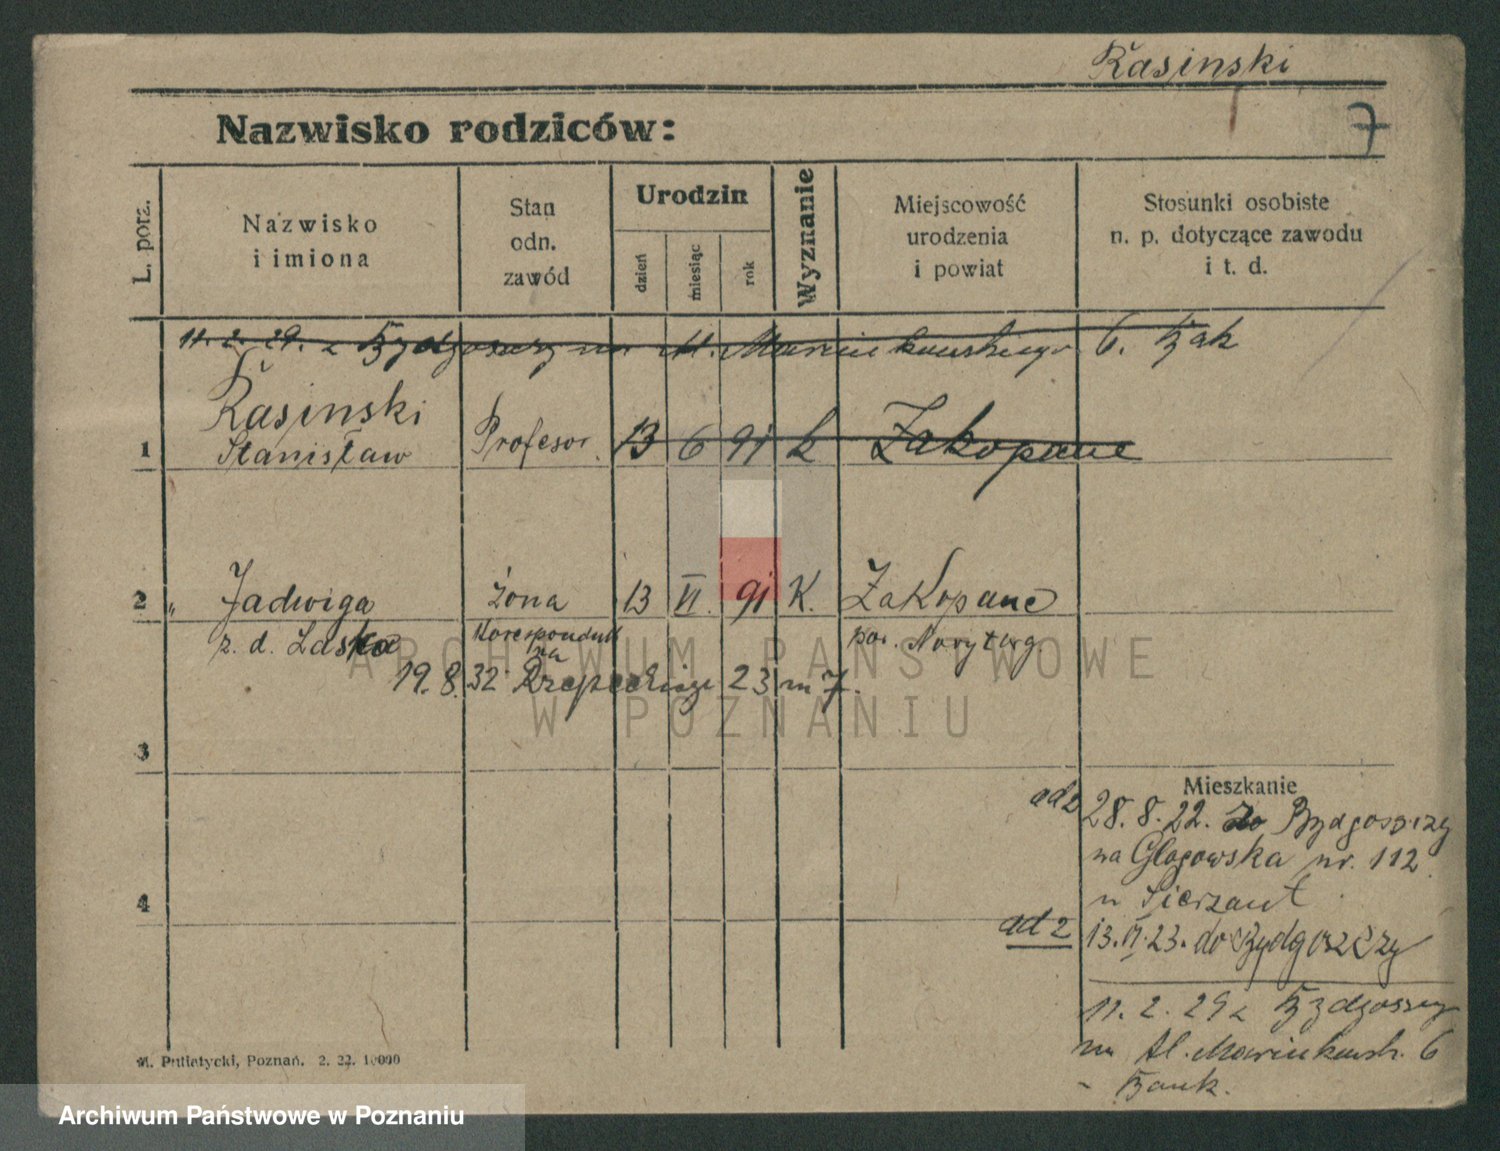 Rasinski
7
Nazwisko rodziców:
L. porz.
Nazwisko
i imiona
Stan
odn.
zawód
Urodzin
dzień
miesiąc
rok
Wyznanie
Miejscowość
urodzenia
i powiat
Stosunki osobiste
n. p. dotyczące zawodu
i t. d.
11. 2. 29. z Bydgoszczy na Al. Marcinkowskiego 6. Bank
1 Rasinski Stanisław Profesor 13 6 91 k Zakopane
2 „ Jadwiga żona 13 VI. 91 K. Zakopane
z. d. Laska Korespondentka pow. Nowytarg.
19. 8. 32 Rzepeckiego 23 m 7.
ARCHIWUM PAŃSTWOWE
W POZNANIU
3
Mieszkanie
ad 2 28. 8. 22. do Bydgoszczy
na Głogowska nr. 112
u Sierzant
4
ad 2 13. VI. 23. do Bydgoszczy
11. 2. 29 z Bydgoszczy
na Al. Marcinkowsk. 6
- Bank.
M. Putiatycki, Poznań. 2. 22. 10000
Archiwum Państwowe w Poznaniu